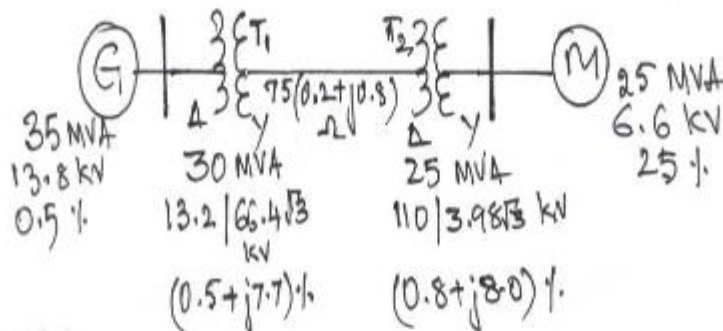 G
T₁
T₂
M
75(0.2+j0.8)
Ω
Δ
Y
Δ
Y
35 MVA
13.8 kV
0.5 %
30 MVA
13.2|66.4√3
kV
(0.5+j7.7)%
25 MVA
110|3.98√3 kV
(0.8+j8.0)%
25 MVA
6.6 kV
25 %